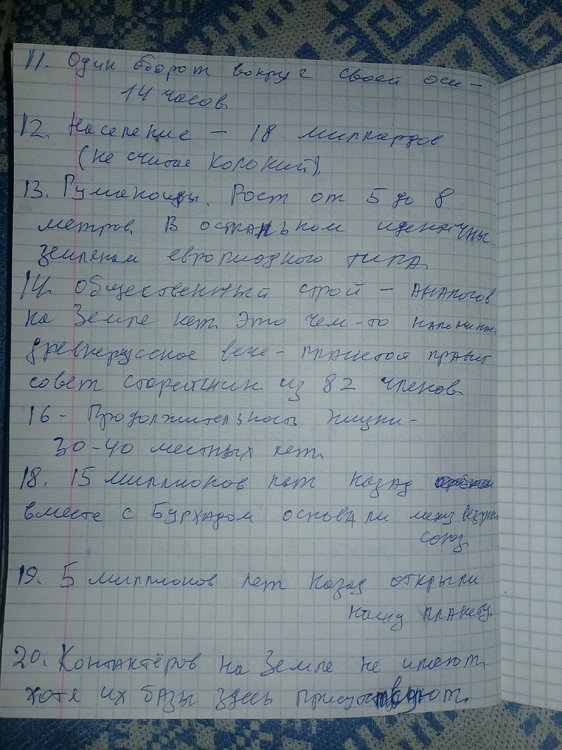 11. Один оборот вокруг своей оси -
14 часов.
12. Население - 18 миллиардов
(не считая колоний).
13. Гуманоиды. Рост от 5 до 8
метров. В остальном идентичны
землянам европиодного типа.
14. Общественный строй - аналогов
на Земле нет. Это чем-то напоминает
древнерусское вече - планетой правит
совет старейшин из 82 членов.
16 - Продолжительность жизни -
30-40 местных лет.
18. 15 миллионов лет назад
вместе с Бурхадом основали
союз
19. 5 миллионов лет назад открыли
нашу планету.
20. Контактёров на Земле не имеют,
хотя их базы здесь присутствуют.